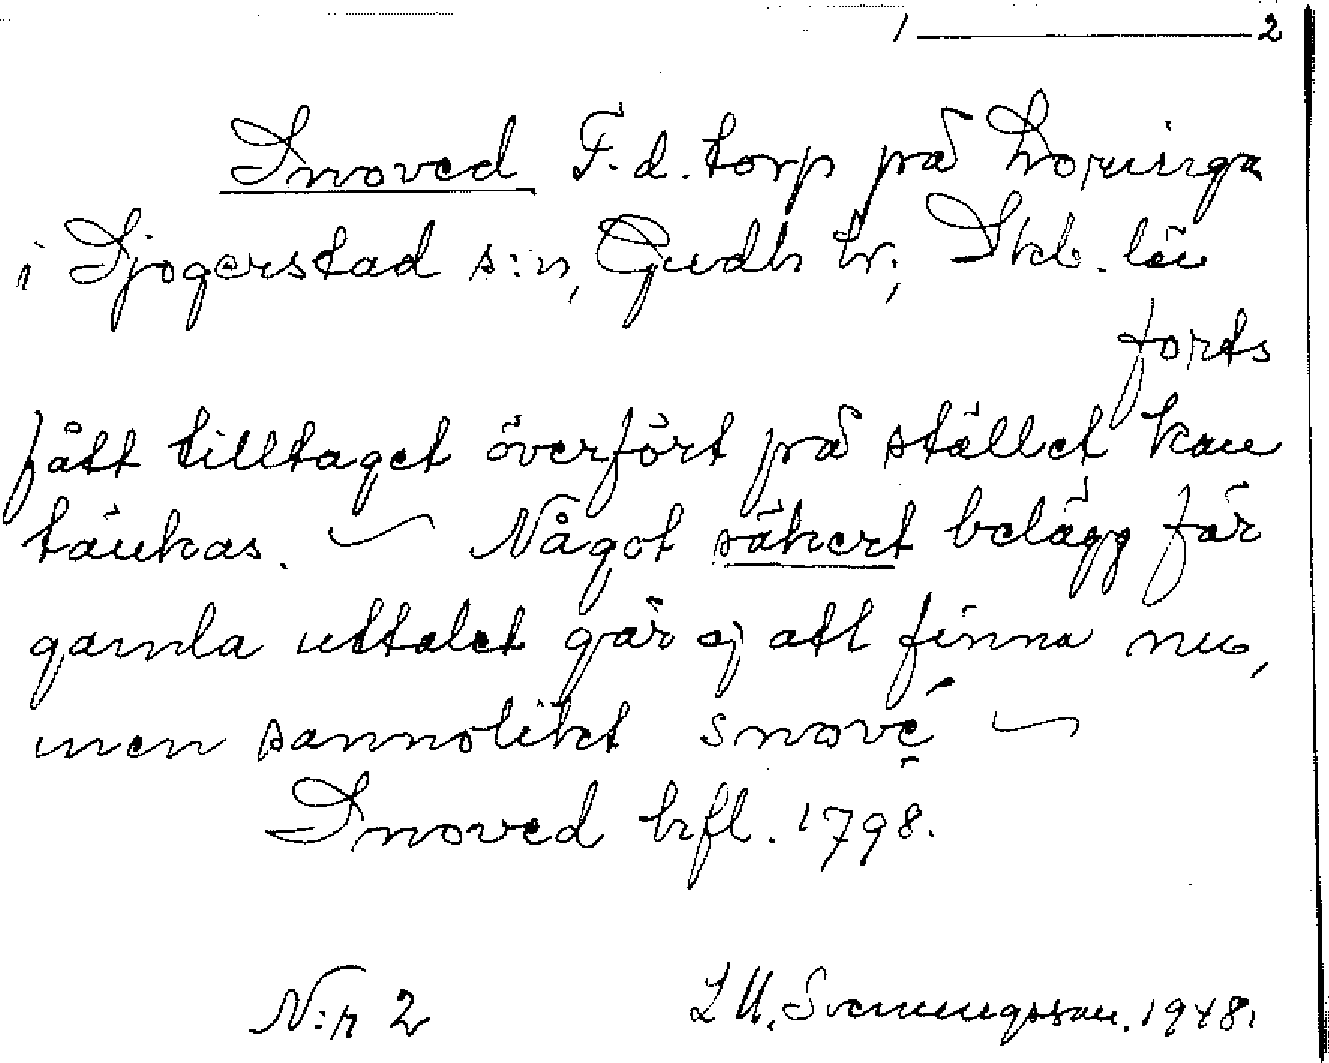 1 ——— 2
Snoved F.d. torp på Loringa
i Sjogerstad s:n, Gudh hr; Skb. län
forts
fått tilltaget överfört på stället kan
tänkas. — Något säkert belägg för
gamla uttalet går ej att finna nu,
men sannolikt snové —
Snoved hfl. 1798.
N:r 2 L U. Svenningsson. 1948.